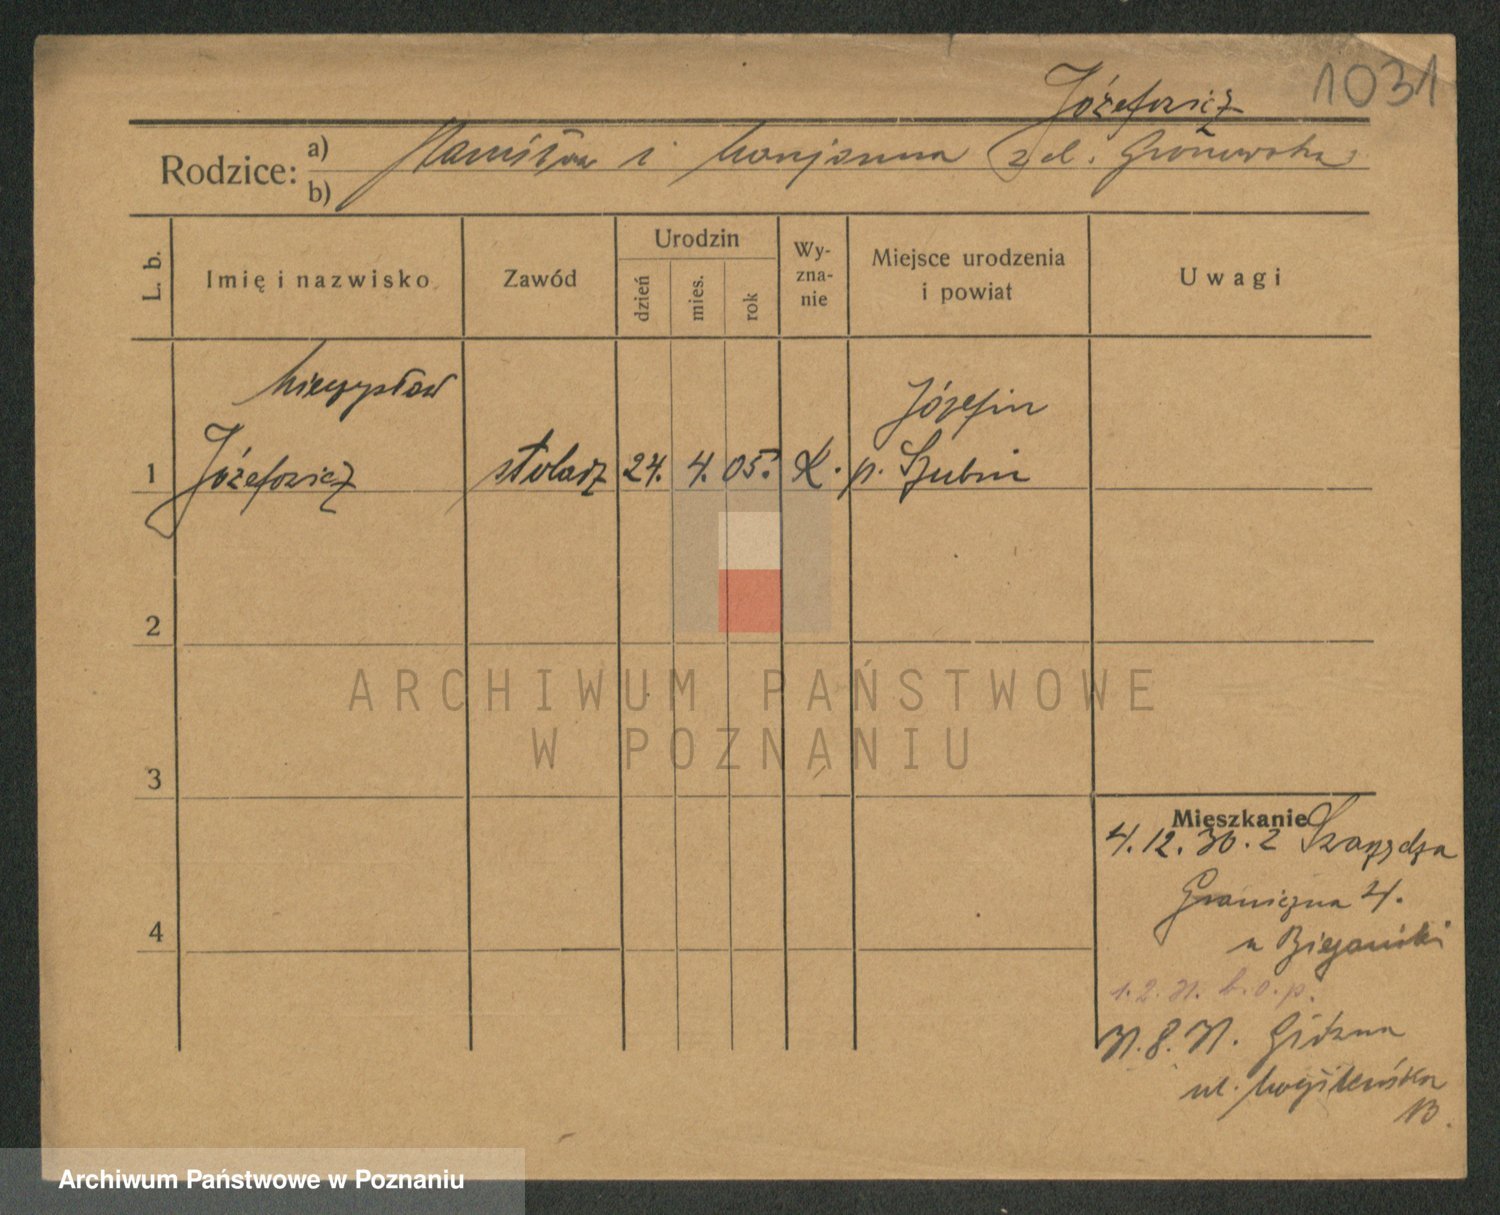 1031
Józefowicz
Rodzice: a) Stanisław i Marjanna z d. Gronowska
b)
L. b.
Imię i nazwisko
Zawód
Urodzin
dzień
mies.
rok
Wy-
zna-
nie
Miejsce urodzenia
i powiat
Uwagi
Mieczysław
Józefin
1 Józefowicz stolarz 24. 4. 05. K. p. Szubin
2
ARCHIWUM PAŃSTWOWE
W POZNANIU
3
Mieszkanie
4.12.30. z
Graniczna 4.
u Biegański
4
1.2.31. b.o.p.
31.8.31. Główna
ul.
13.
Archiwum Państwowe w Poznaniu